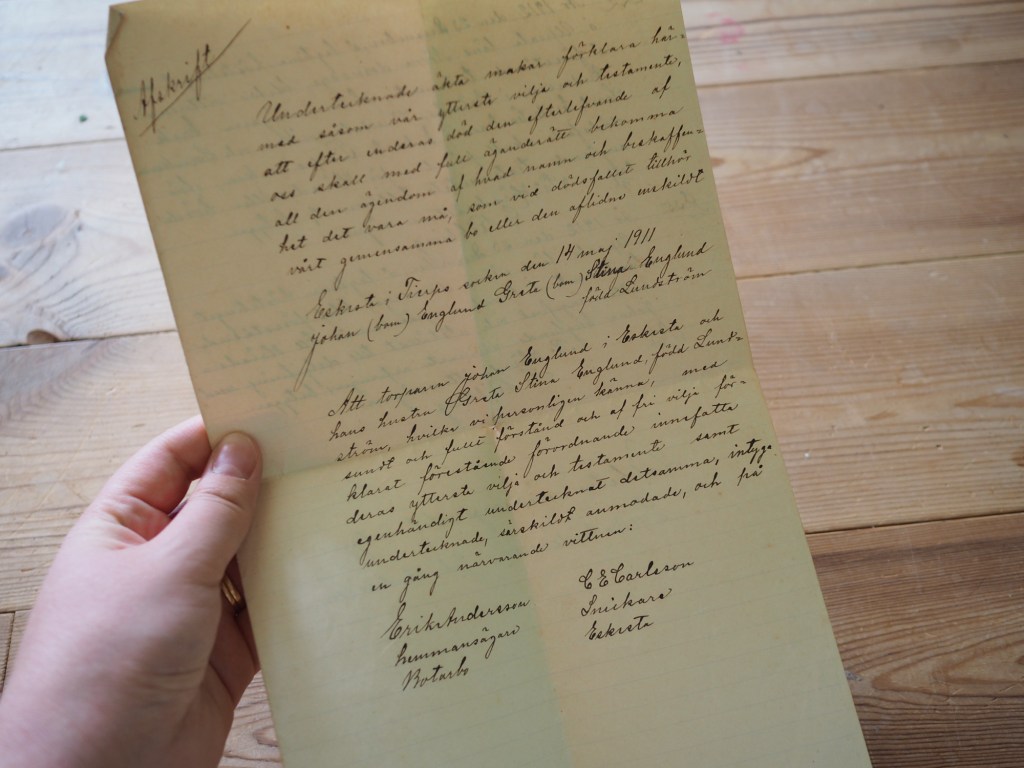 Afskrift
Undertecknade äkta makar förklara här-
med såsom vår ytterste vilja och testamente,
att efter enderas död den efterlefvande af
oss skall med full äganderätt bekomma
all den ägendom af hvad namn och beskaffen-
het det vara må, som vid dödsfallet tillhör
vårt gemensamma bo eller den aflidne enskildt
Eskesta i Tierps socken den 14 maj 1911
Johan (bom.) Englund Greta (bom.) Stina Englund
född Lundström
Att torparen Johan Englund i Eskesta och
hans hustru Greta Stina Englund, född Lund-
ström, hvilke vi personligen känna, med
sundt och fullt förstånd och af fri vilja för-
klarat förestående förordnande innefatta
deras ytterste vilja och testamente samt
egenhändigt undertecknat detsamma, intyga
undertecknade, särskildt anmodade, och på
en gång närvarande vittnen:
Erik Andersson
hemmansägare
C E Carlsson
Snickare
Eskesta